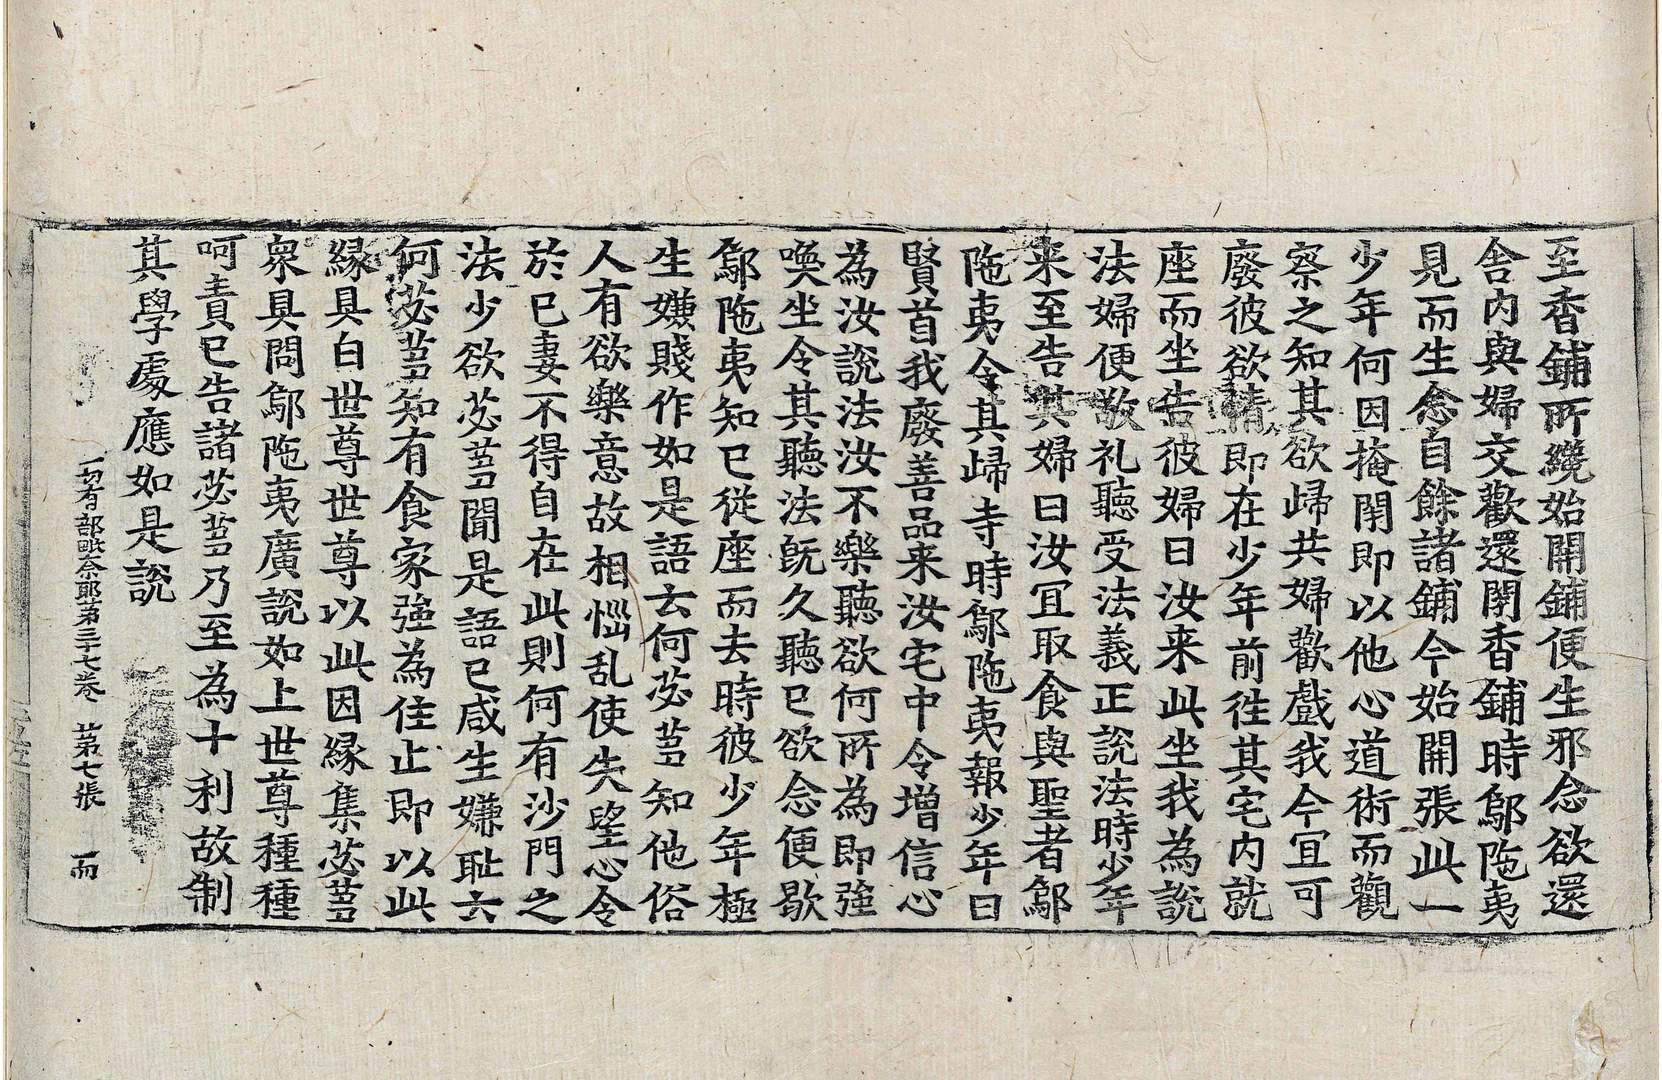 至香鋪所纔始開鋪便生邪念欲還
舍內與婦交歡還閇香鋪時鄔陁夷
見而生念自餘諸鋪今始開張此一
少年何因掩閇即以他心道術而觀
察之知其欲歸共婦歡戲我今冝可
廢彼欲情即在少年前徃其宅內就
座而坐告彼婦曰汝来此坐我為說
法婦便敬礼聽受法義正說法時少年
来至告其婦曰汝冝取食與聖者鄔
陁夷令其歸寺時鄔陁夷報少年曰
賢首我廢善品来汝宅中令增信心
為汝說法汝不樂聽欲何所為即強
喚坐令其聽法旣久聽已欲念便歇
鄔陁夷知已從座而去時彼少年極
生嫌賤作如是語云何苾蒭知他俗
人有欲樂意故相惱乱使失望心令
於已妻不得自在此則何有沙門之
法少欲苾蒭聞是語已咸生嫌耻云
何苾蒭知有食家強為住止即以此
緣具白世尊世尊以此因緣集苾蒭
衆具問鄔陁夷廣說如上世尊種種
呵責已告諸苾蒭乃至為十利故制
其學處應如是說
一切有部毗奈耶第三十七卷 第七張 而